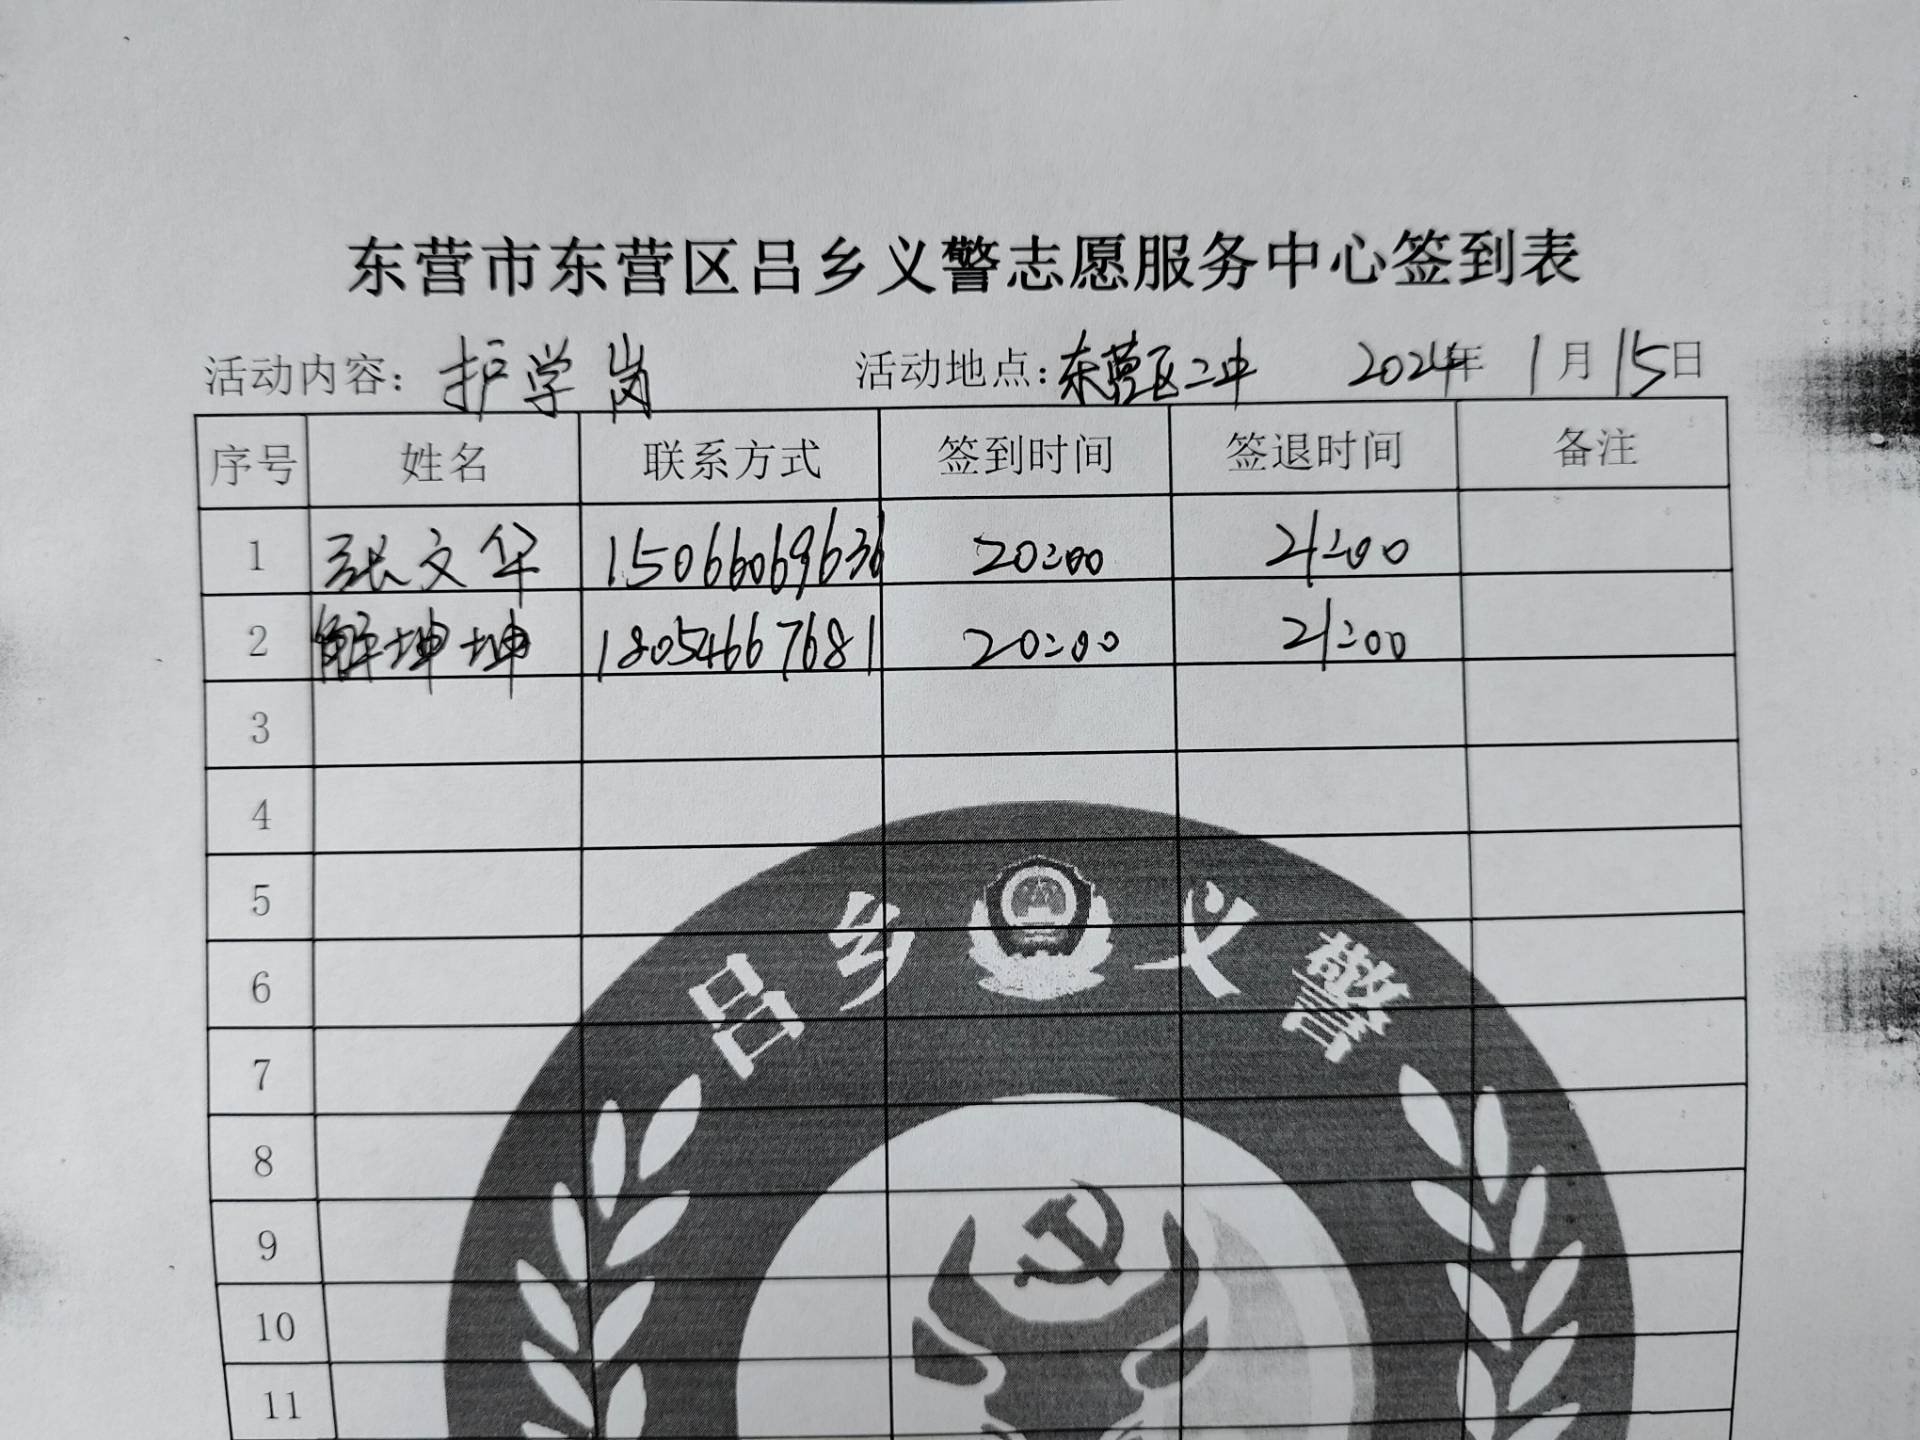 东营市东营区吕乡义警志愿服务中心签到表
活动内容：护学岗 活动地点：东营区二中 2024年 1月15日
序号 姓名 联系方式 签到时间 签退时间 备注
1 张文华 15066069636 20:00 21:00
2 解坤坤 18054667681 20:00 21:00
3
4
5
6
7
8
9
10
11
吕乡义警